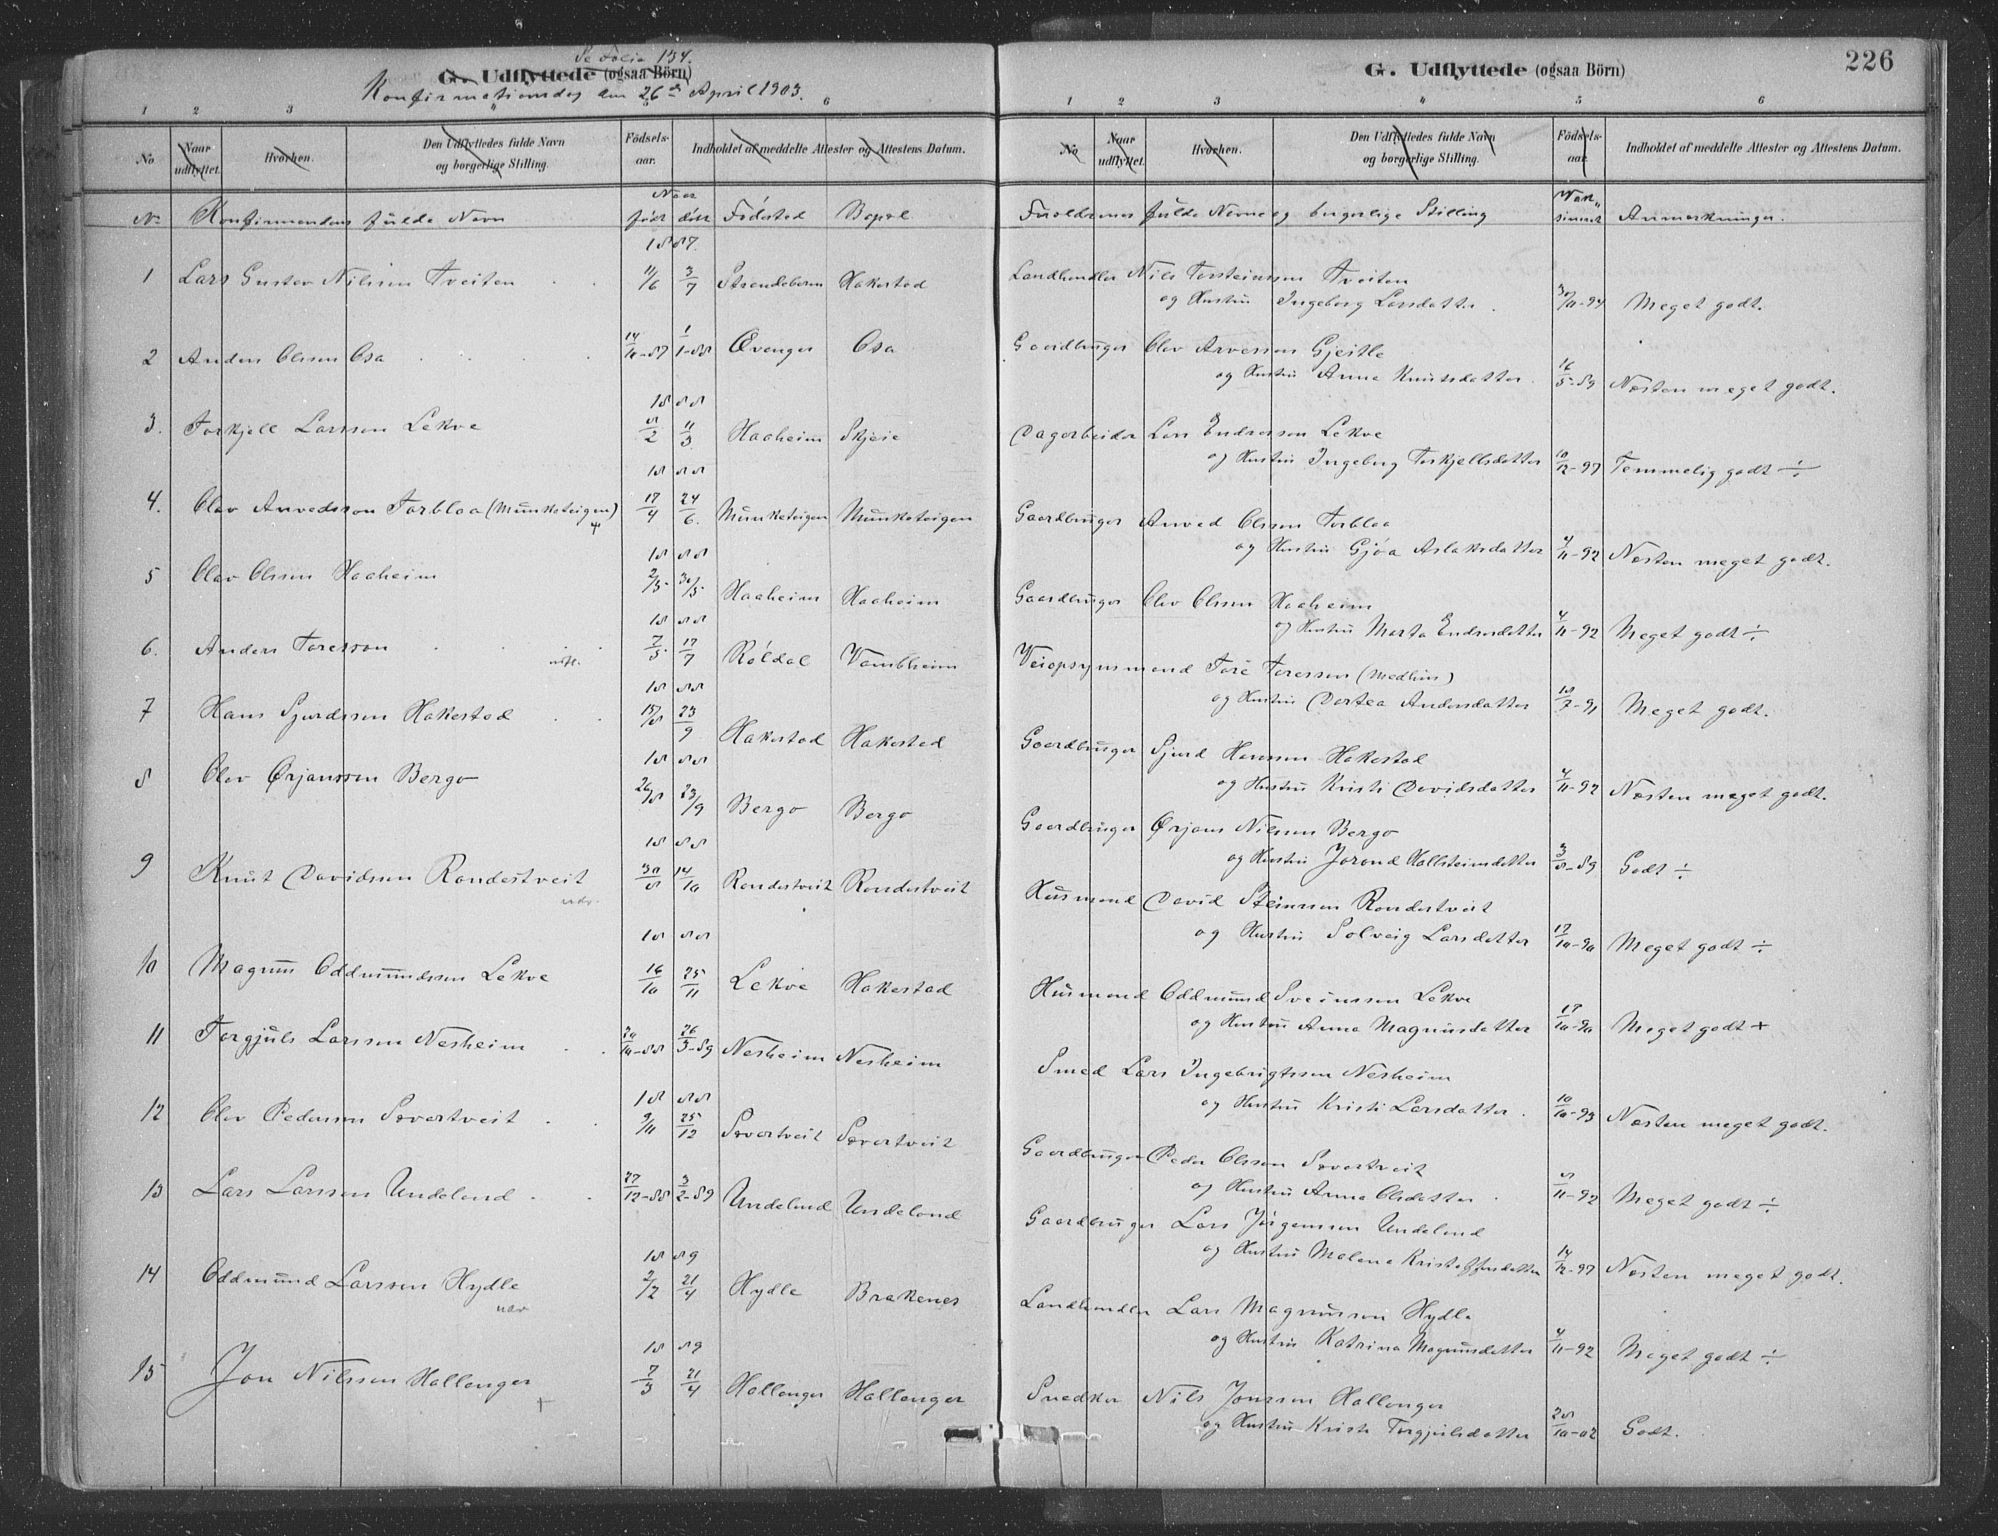 Se Folio 134.
G. Udflyttede (ogsaa Börn)
Konfirmationsdag den 26de April 1903.
1 2 3 4 5 6
No Naar udflyttet. Hvorhen. Den Udflyttedes fulde Navn og borgerlige Stilling. Födsels-aar. Indholdet af meddelte Attester og Attestens Datum.
No Konfirmandens fulde Navn Naar født døbt Fødested Bopæl
1 Lars Gustav Nilsson Tveiten 1887. 11/6 3/7 Strandebarm Hakestad
2 Anders Olsson Osa 14/11-87 1/1-88 Øvanger Osa
3. Torkjell Larsson Lekve 1888 8/2 11/3 Haaheim Skjeie
4. Olav Arvedsson Torbloa (Munketeigen) 1888 17/4 24/6. Munketeigen Munketeigen
5 Olav Olsson Haaheim 1888 2/5 30/5 Haaheim Haaheim
6. Anders Toresson 1888 7/5 17/7 Røldal Vambheim
7 Hans Sjurdsson Hakestad 1888 15/8 23/9 Hakestad Hakestad
8 Olav Ørjansson Bergo 1888 26/8 23/9 Bergo Bergo
9 Knut Davidsson Rondestveit 1888 30/8 14/10 Rondestveit Rondestveit
10 Magnus Oddmundsson Lekve 1888 16/10 25/11 Lekve Hakestad
11 Torgjuls Larsson Nesheim 20/10-88 26/3-89 Nesheim Nesheim
12 Olav Pederson Svartveit 1888 9/11 25/12 Svartveit Svartveit
13 Lars Larsson Undeland 27/12-88 3/2-89 Undeland Undeland
14 Oddmund Larsson Hydle 1889 2/2 21/4 Hydle Brakenes
15 Jon Nilsson Hallanger 1889 7/3 21/4 Hallanger Hallanger
226
G. Udflyttede (ogsaa Börn)
1 2 3 4 5 6
No Naar udflyttet. Hvorhen. Den Udflyttedes fulde Navn og borgerlige Stilling. Födsels-aar. Indholdet af meddelte Attester og Attestens Datum.
Forældrenes fulde Navne og borgerlige Stilling Anmerkninger.
Landhandler Nils Torsteinsson Tveiten
og Hustru Ingeborg Larsdatter 30/11-94 Meget godt.
Gaardbruger Olav Arvesson Gjeitle
og Hustru Anna Knutsdatter. 16/5-89 Næsten meget godt.
Dagarbeider Lars Endresson Lekve
og Hustru Ingeborg Torkjellsdatter 10/12-97 Temmelig godt ÷
Gaardbruger Arved Olsson Torbloa
og Hustru Gjøa Aslaksdatter 4/11-92 Næsten meget godt.
Gaardbruger Olav Olsson Haaheim
og Hustru Marta Endresdatter 4/11-92 Meget godt ÷
Veiopsynsmand Tore Toresson (Medhus)
og Hustru Dortea Andersdatter 18/7-91 Meget godt.
Gaardbruger Sjurd Hansson Hakestad
og Hustru Kristi Davidsdatter 4/11-92 Næsten meget godt.
Gaardbruger Ørjans Nilsson Bergo
og Hustru Jorond Hallsteinsdatter 3/8-89 Godt ÷
Husmand David Steinsson Rondestveit
og Hustru Solveig Larsdatter 17/10-90 Meget godt ÷
Husmand Oddmund Sveinsson Lekve
og Hustru Anna Magnusdatter 17/10-90 Meget godt +
Smed Lars Ingebrigtsson Nesheim
og Hustru Kristi Larsdatter. 10/10-93 Næsten meget godt.
Gaardbruger Peder Olsson Svartveit
og Hustru Anna Olsdatter. 11-92 Meget godt ÷
Gaardbruger Lars Jørgensson Undeland
og Hustru Malena Kristoffersdatter 14/12-97 Næsten meget godt.
Landhandler Lars Magnusson Hydle
og Hustru Katrina Magnusdatter 4/11-92 Meget godt ÷
Snedker Nils Jonsson Hallanger
og Hustru Kristi Torgjulsdatter 28/10-02 Godt.